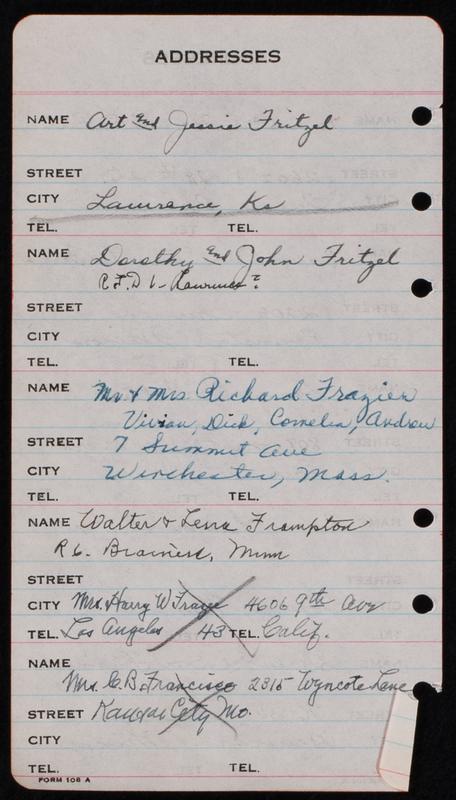 ADDRESSES
NAME Art and Jessie Fritzel
STREET
CITY Lawrence, Ks
TEL. TEL.
NAME Dorothy and John Fritzel
R.F.D 6 - Lawrence?
STREET
CITY
TEL. TEL.
NAME Mr & Mrs Richard Frazier
Vivian, Dick, Cornelia, Andrew
STREET 7 Summit Ave
CITY Winchester, Mass.
TEL. TEL.
NAME Walter & Lena Frampton
R 6. Brainerd, Minn
STREET
CITY Mrs. Harry W. Fraze 4606 9th Ave
TEL. Los Angeles 43 TEL. Calif.
NAME
Mrs. C. B. Francisco 2315 Wyncote Lane
STREET Kansas City Mo.
CITY
TEL. TEL.
FORM 106 A